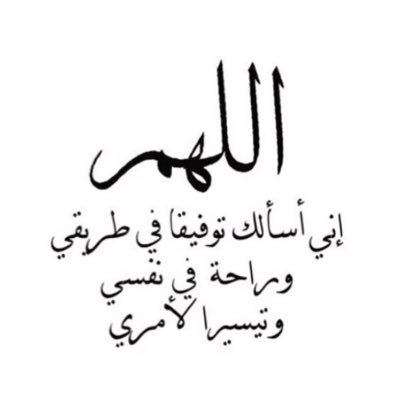 اللهم
إني أسألك توفيقا في طريقي
وراحة في نفسي
وتيسيرا لأمري